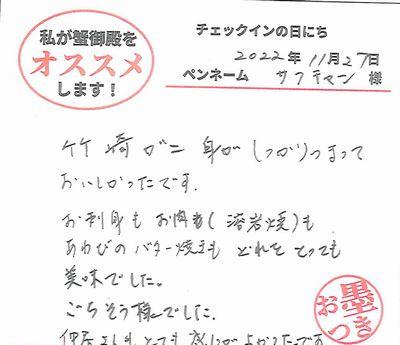 私が蟹御殿を
オススメ
します！
チェックインの日にち
2022年11月27日
ペンネーム サフチャン 様
竹崎がニ 身がしっかりつまって
おいしかったです.
お刺身も お肉も(溶岩焼)も
あわびのバター焼きも どれも とっても
美味でした。
ごちそう様でした.
とても 感じがよかったです
お墨つき